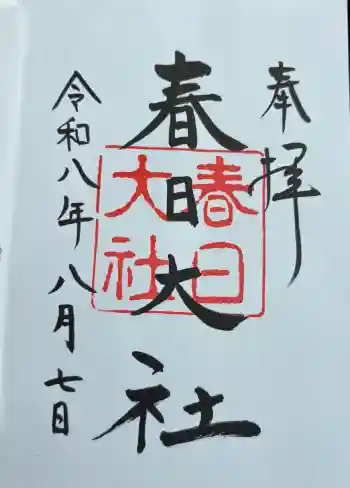 奉拝
春日大社
春日
大社
令和八年八月七日